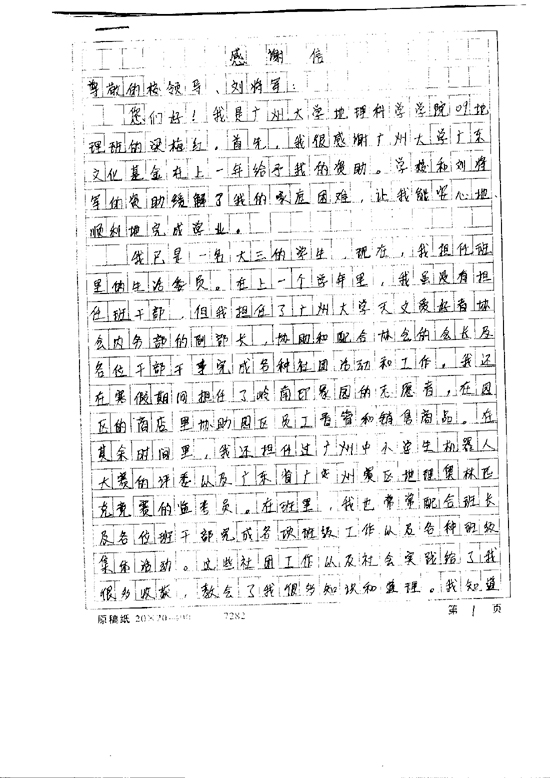 感谢信
尊敬的校领导、刘将军:
您们好!我是广州大学地理科学学院09地
理班的梁梅红。首先,我很感谢广州大学广东
文化基金在上一年给予我的资助。学校和刘将
军的资助缓解了我的家庭困难,让我能安心地
顺利地完成学业。
我已是一名大三的学生,现在,我担任班
里的生活委员。在上一个学年里,我虽没有担
任班干部,但我担任了广州大学天文爱好者协
会内务部的副部长,协助和配合协会的会长及
各位干部干事完成各种社团活动和工作。我还
在寒假期间担任了岭南印象园的志愿者,在园
区的商店里协助园区员工看管和销售商品。在
其余时间里,我还担任过广州中小学生机器人
大赛的评委以及广东省广州赛区地理奥林匹
克竞赛的监考员。在班里,我也常常配合班长
及各位班干部完成各项班级工作以及各种班级
集体活动。这些社团工作以及社会实践给了我
很多收获,教会了我很多知识和道理。我知道
原稿纸 20×20=400 7282 第 1 页